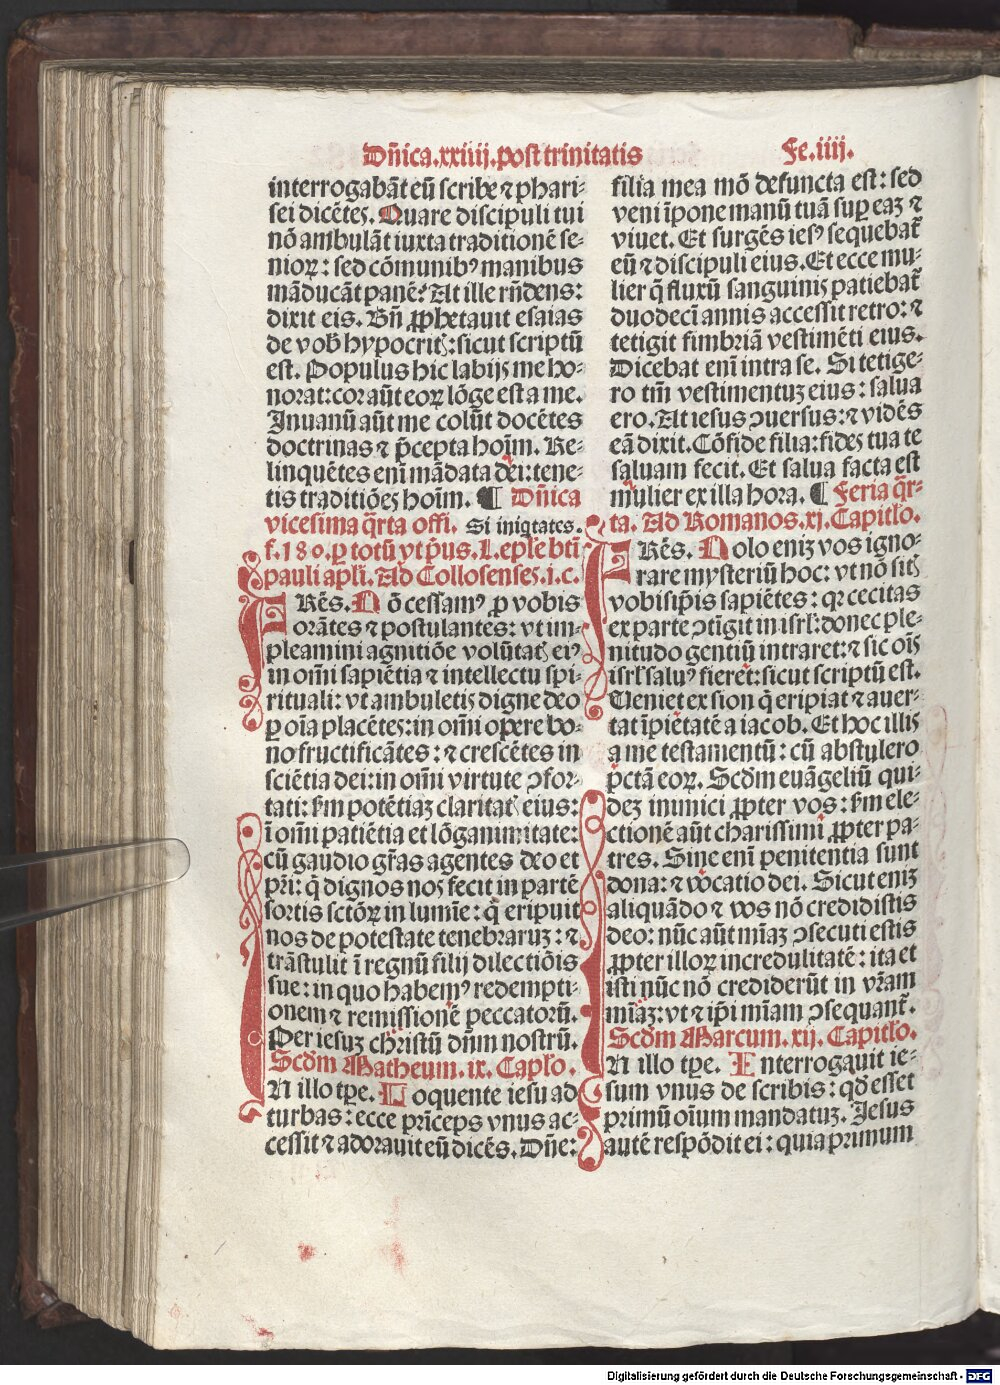 Dñica.xxiiij.post trinitatis Fe.iiij.
interrogabãt eũ scribe ⁊ phari⸗
sei dicẽtes. Quare discipuli tui
nõ ambulãt iuxta traditionẽ se⸗
nioꝝ: sed cõmunibꝰ manibus
mãducãt panẽ? At ille rñdens:
dixit eis. Bñ ꝓphetauit esaias
de vob̃ hypocritꝭ: sicut scriptũ
est. Populus hic labijs me ho⸗
norat: cor aũt eoꝝ lõge est a me.
Inuanũ aũt me colũt docẽtes
doctrinas ⁊ p̃cepta hoĩm. Re⸗
linquẽtes enĩ mãdata dei: tene⸗
tis traditiõeʒ hoĩm. ¶ Dñica
vicesima q̃rta offi. Si iniqtates.
f.180. ꝑ totũ vt p̃us. L. epl̃e btĩ
pauli apl̃i. Ad Collosenseʒ.i.c.
FRẽs. Nõ cessamꝰ ꝓ vobis
orãtes ⁊ postulantes: vt im⸗
pleamini agnitiõe volũtatꝭ eiꝰ
in om̃i sapiẽtia ⁊ intellectu spi⸗
rituali: vt ambuletis digne deo
ꝑ oĩa placẽtes: in om̃i opere bo⸗
no fructificãtes: ⁊ crescẽtes in
sciẽtia dei: in om̃i virtute ꝯfor⸗
tati: s̃m potẽtiaʒ claritatꝭ eius:
ĩ om̃i patiẽtia et lõganimitate:
cũ gaudio gr̃as agentes deo et
pr̃i: q̃ dignos nos fecit in partẽ
sortis sctõꝝ in lumĩe: q̃ eripuit
nos de potestate tenebraruʒ: ⁊
trãstulit ĩ regnũ filij dilectiõis
sue: in quo habemꝰ redempti⸗
onem ⁊ remissionẽ peccatorũ.
Per iesuʒ christũ dñm nostrũ.
Scdm̃ Matheum.ix. Capl̃o.
IN illo tp̃e. Loquente iesu ad
turbas: ecce prĩceps vnus ac⸗
cessit ⁊ adorauit eũ dicẽs. Dñe:
filia mea mõ defuncta est: sed
veni ĩpone manũ tuã suꝑ eaʒ ⁊
viuet. Et surgẽs iesꝰ sequebat᷑
eũ ⁊ discipuli eius. Et ecce mu⸗
lier q̃ fluxũ sanguinis patiebat᷑
duodecĩ annis accessit retro: ⁊
tetigit fimbriã vestimẽti eius.
Dicebat enĩ intra se. Si tetige⸗
ro tm̃ vestimentuʒ eius: salua
ero. At iesus ꝯuersus: ⁊ vidẽs
eã dixit. Cõfide filia: fides tua te
saluam fecit. Et salua facta est
mulier ex illa hora. ¶ Feria q̃r⸗
ta. Ad Romanos.xj. Capitl̃o.
FRẽs. Nolo eniʒ vos igno⸗
rare mysteriũ hoc: vt nõ sitꝭ
vobisip̃is sapiẽtes: qꝛ cecitas
ex parte ꝯtĩgit in isrl̃: donec ple⸗
nitudo gentiũ intraret: ⁊ sic oĩs
isrl̃ saluꝰ fieret: sicut scriptũ est.
Ueniet ex sion q̃ eripiat ⁊ auer⸗
tat ĩpietatẽ a iacob. Et hoc illis
a me testamentũ: cũ abstulero
pctã eoꝝ. Scdm̃ euãgeliũ qui⸗
deʒ inimici ꝓpter vos: s̃m ele⸗
ctionẽ aũt charissimi ꝓpter pa⸗
tres. Sine enĩ penitentia sunt
dona: ⁊ vocatio dei. Sicut eniʒ
aliquãdo ⁊ vos nõ credidistis
deo: nũc aũt mĩaʒ ꝯsecuti estis
ꝓpter illoꝝ incredulitatẽ: ita et
isti nũc nõ crediderũt in vr̃am
mĩaʒ: vt ⁊ ip̃i mĩam ꝯsequant᷑.
Scdm̃ Marcum.xij. Capitl̃o.
IN illo tp̃e. Interrogauit ie⸗
sum vnus de scribis: qd̃ esset
primũ oĩum mandatuʒ. Jesus
autẽ respõdit ei: quia primum
Digitalisierung gefördert durch die Deutsche Forschungsgemeinschaft - DFG